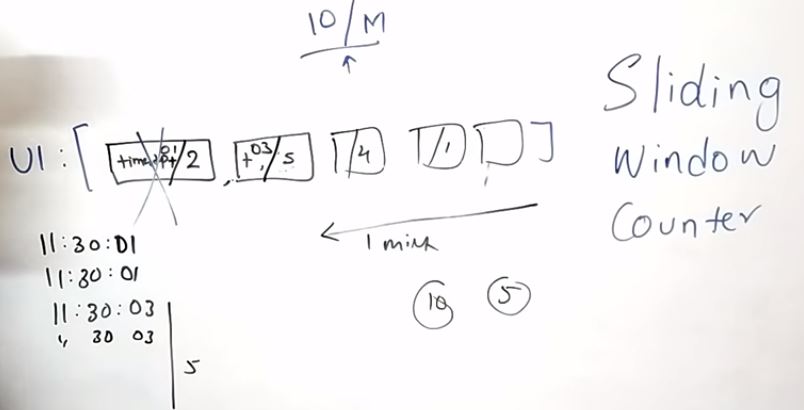 10/M
↑
Sliding
Window
Counter
U1 : [ /2 , t 03/5 /4 /1 ]
← 1 min
11:30:01
11:30:01
11:30:03
" 30 03
5
10 5